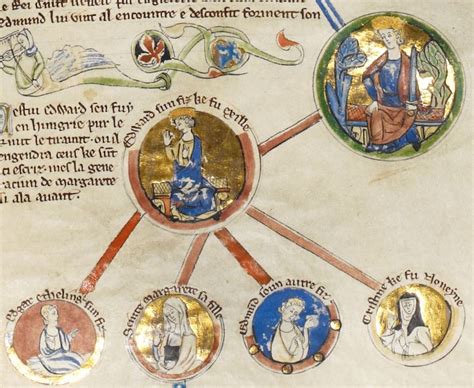 le Rei
Edmund li vint al encontre e desconfit forment son
Cestui Edward sen fuy
en hungrie pur le
truit le tiraunt. ou il
engendra ceus ke sunt
escriz. mes la gene
raciun de margarete
si ala avant.
Edward sun fiz ke fu exille
Edgar etheling sun fiz
seinte margarete sa fille
Edmund soun autre fiz
Cristine ke fu Noneyne